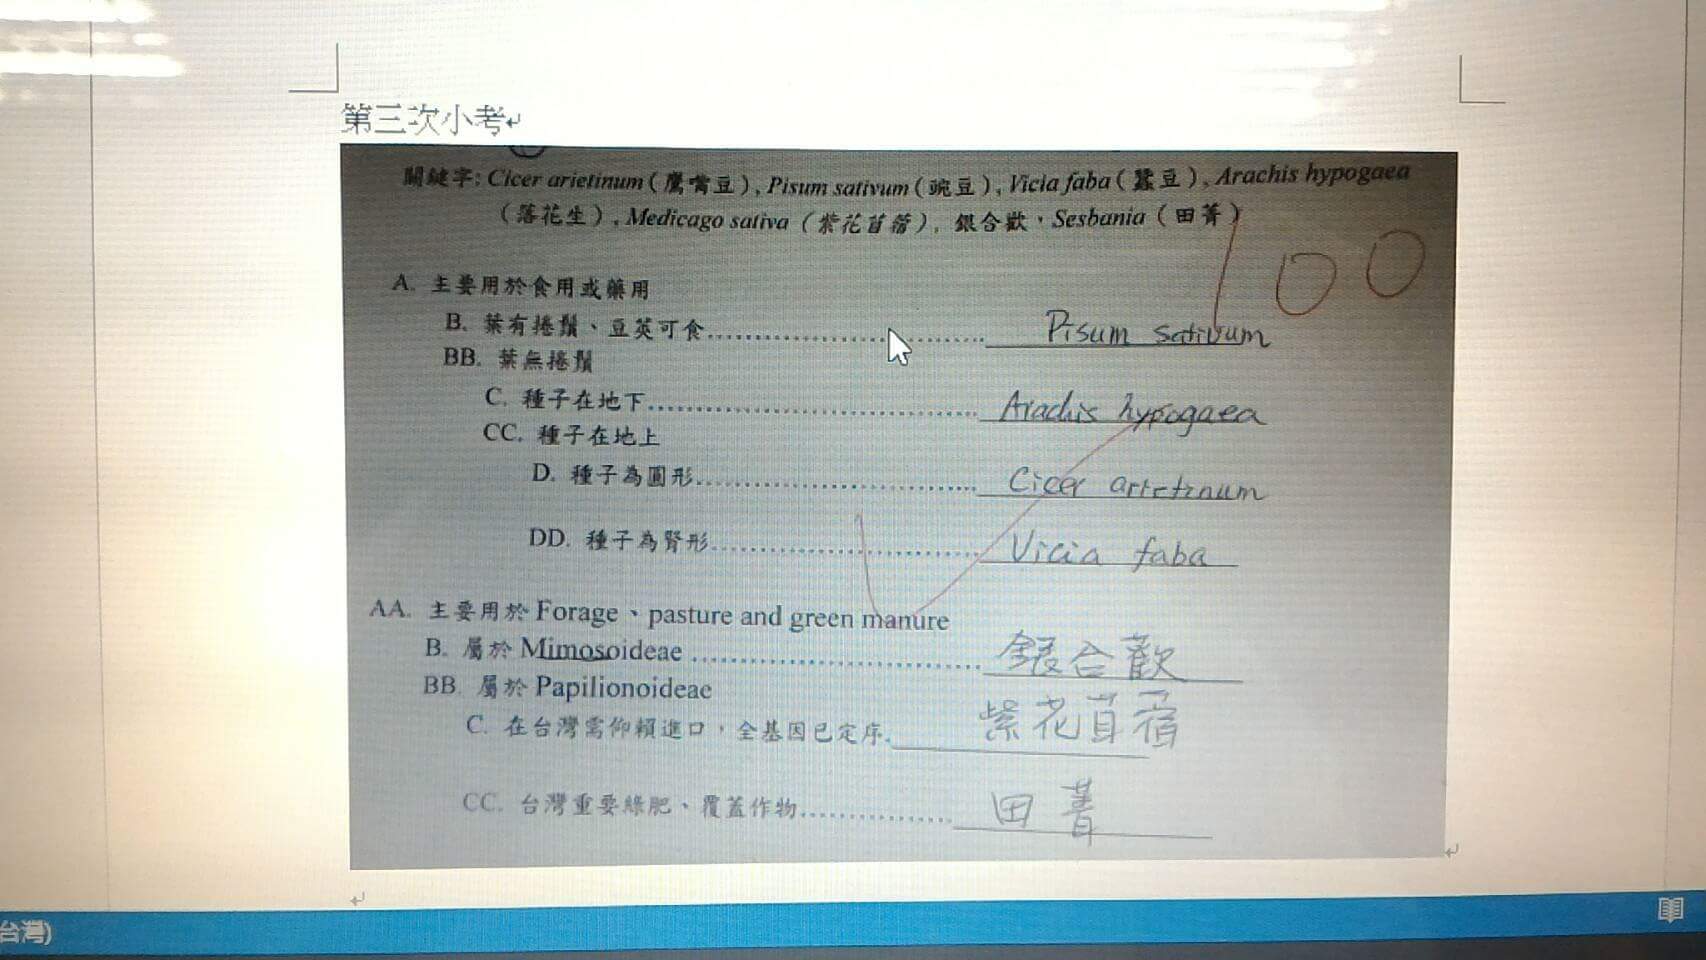 第三次小考
關鍵字: Cicer arietinum（鷹嘴豆）, Pisum sativum（豌豆）, Vicia faba（蠶豆）, Arachis hypogaea
（落花生）, Medicago sativa（紫花苜蓿）, 銀合歡，Sesbania（田菁）
100
A. 主要用於食用或藥用
B. 葉有捲鬚、豆莢可食.................................... Pisum sativum
BB. 葉無捲鬚
C. 種子在地下.................................... Arachis hypogaea
CC. 種子在地上
D. 種子為圓形.................................... Cicer arietinum
DD. 種子為腎形.................................... Vicia faba
AA. 主要用於 Forage、pasture and green manure
B. 屬於 Mimosoideae .................................... 銀合歡
BB. 屬於 Papilionoideae
C. 在台灣需仰賴進口，全基因已定序. 紫花苜蓿
CC. 台灣重要綠肥、覆蓋作物................... 田菁
台灣)